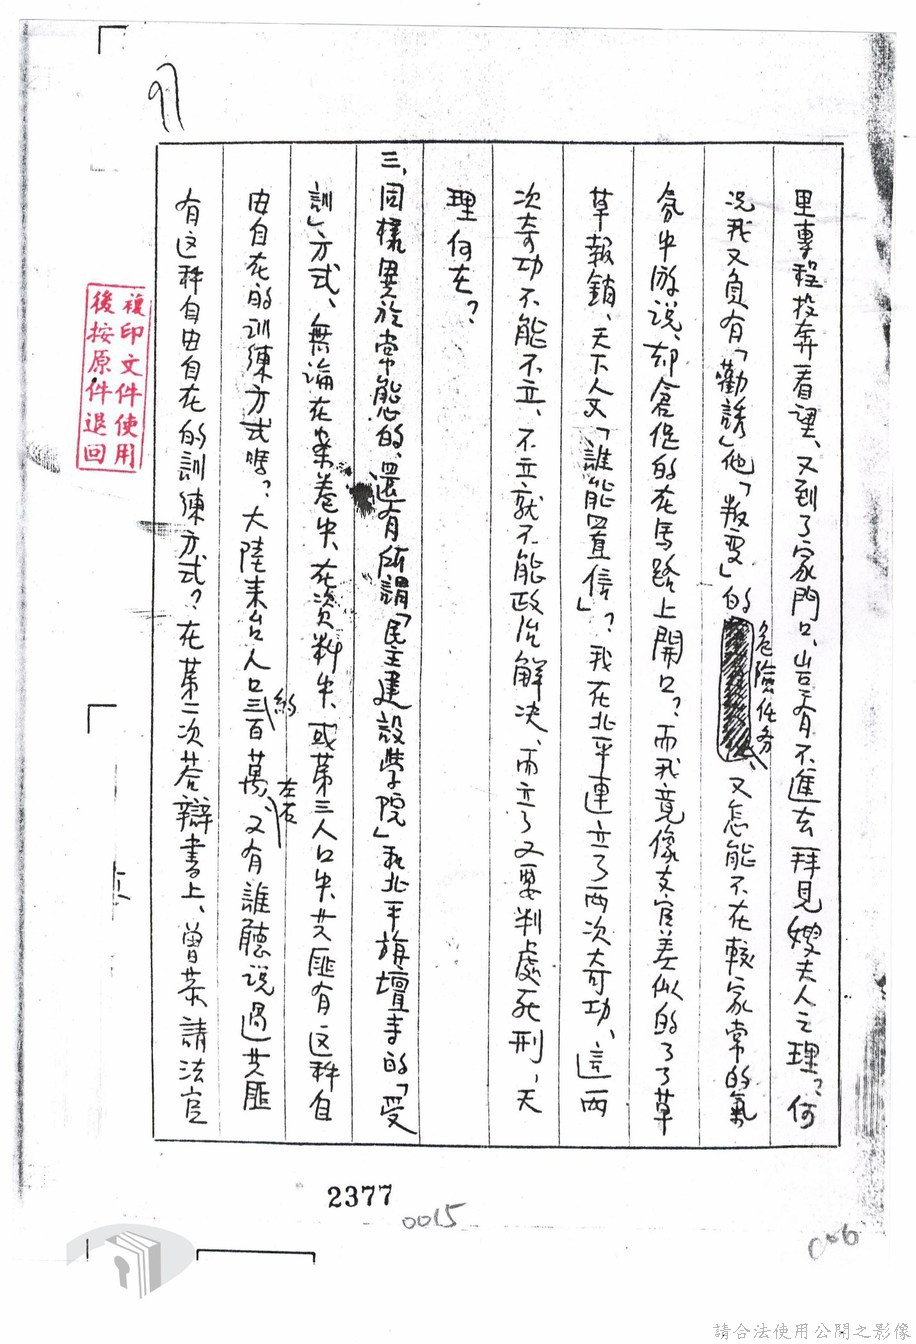 里專程投奔看望、又到了家門口、豈有不進去拜見嫂夫人之理?、何
況我又負有「勸誘」他「叛变」的危險任务、又怎能不在較家常的氣
氛中游说、却倉促的在馬路上開口?、而我竟像交官差似的了了草
草報銷、天下人又「誰能置信」?、我在北平連立了两次奇功、這两
次奇功不能不立、不立就不能政治解决、而立了又要判處死刑、天
理何在?
三、同樣異於常態的、還有所謂「民主建設學院」和北平旃壇寺的「受
訓」方式、無論在案卷中、在資料中、或第三人口中共匪有这种自
由自在的訓練方式嗎?、大陸来台人口約三百萬左右、又有誰聽说過共匪
有这种自由自在的訓練方式?在第二次答辯書上、曾恭請法官
複印文件使用
後按原件退回
2377
0015
006
請合法使用公開之影像